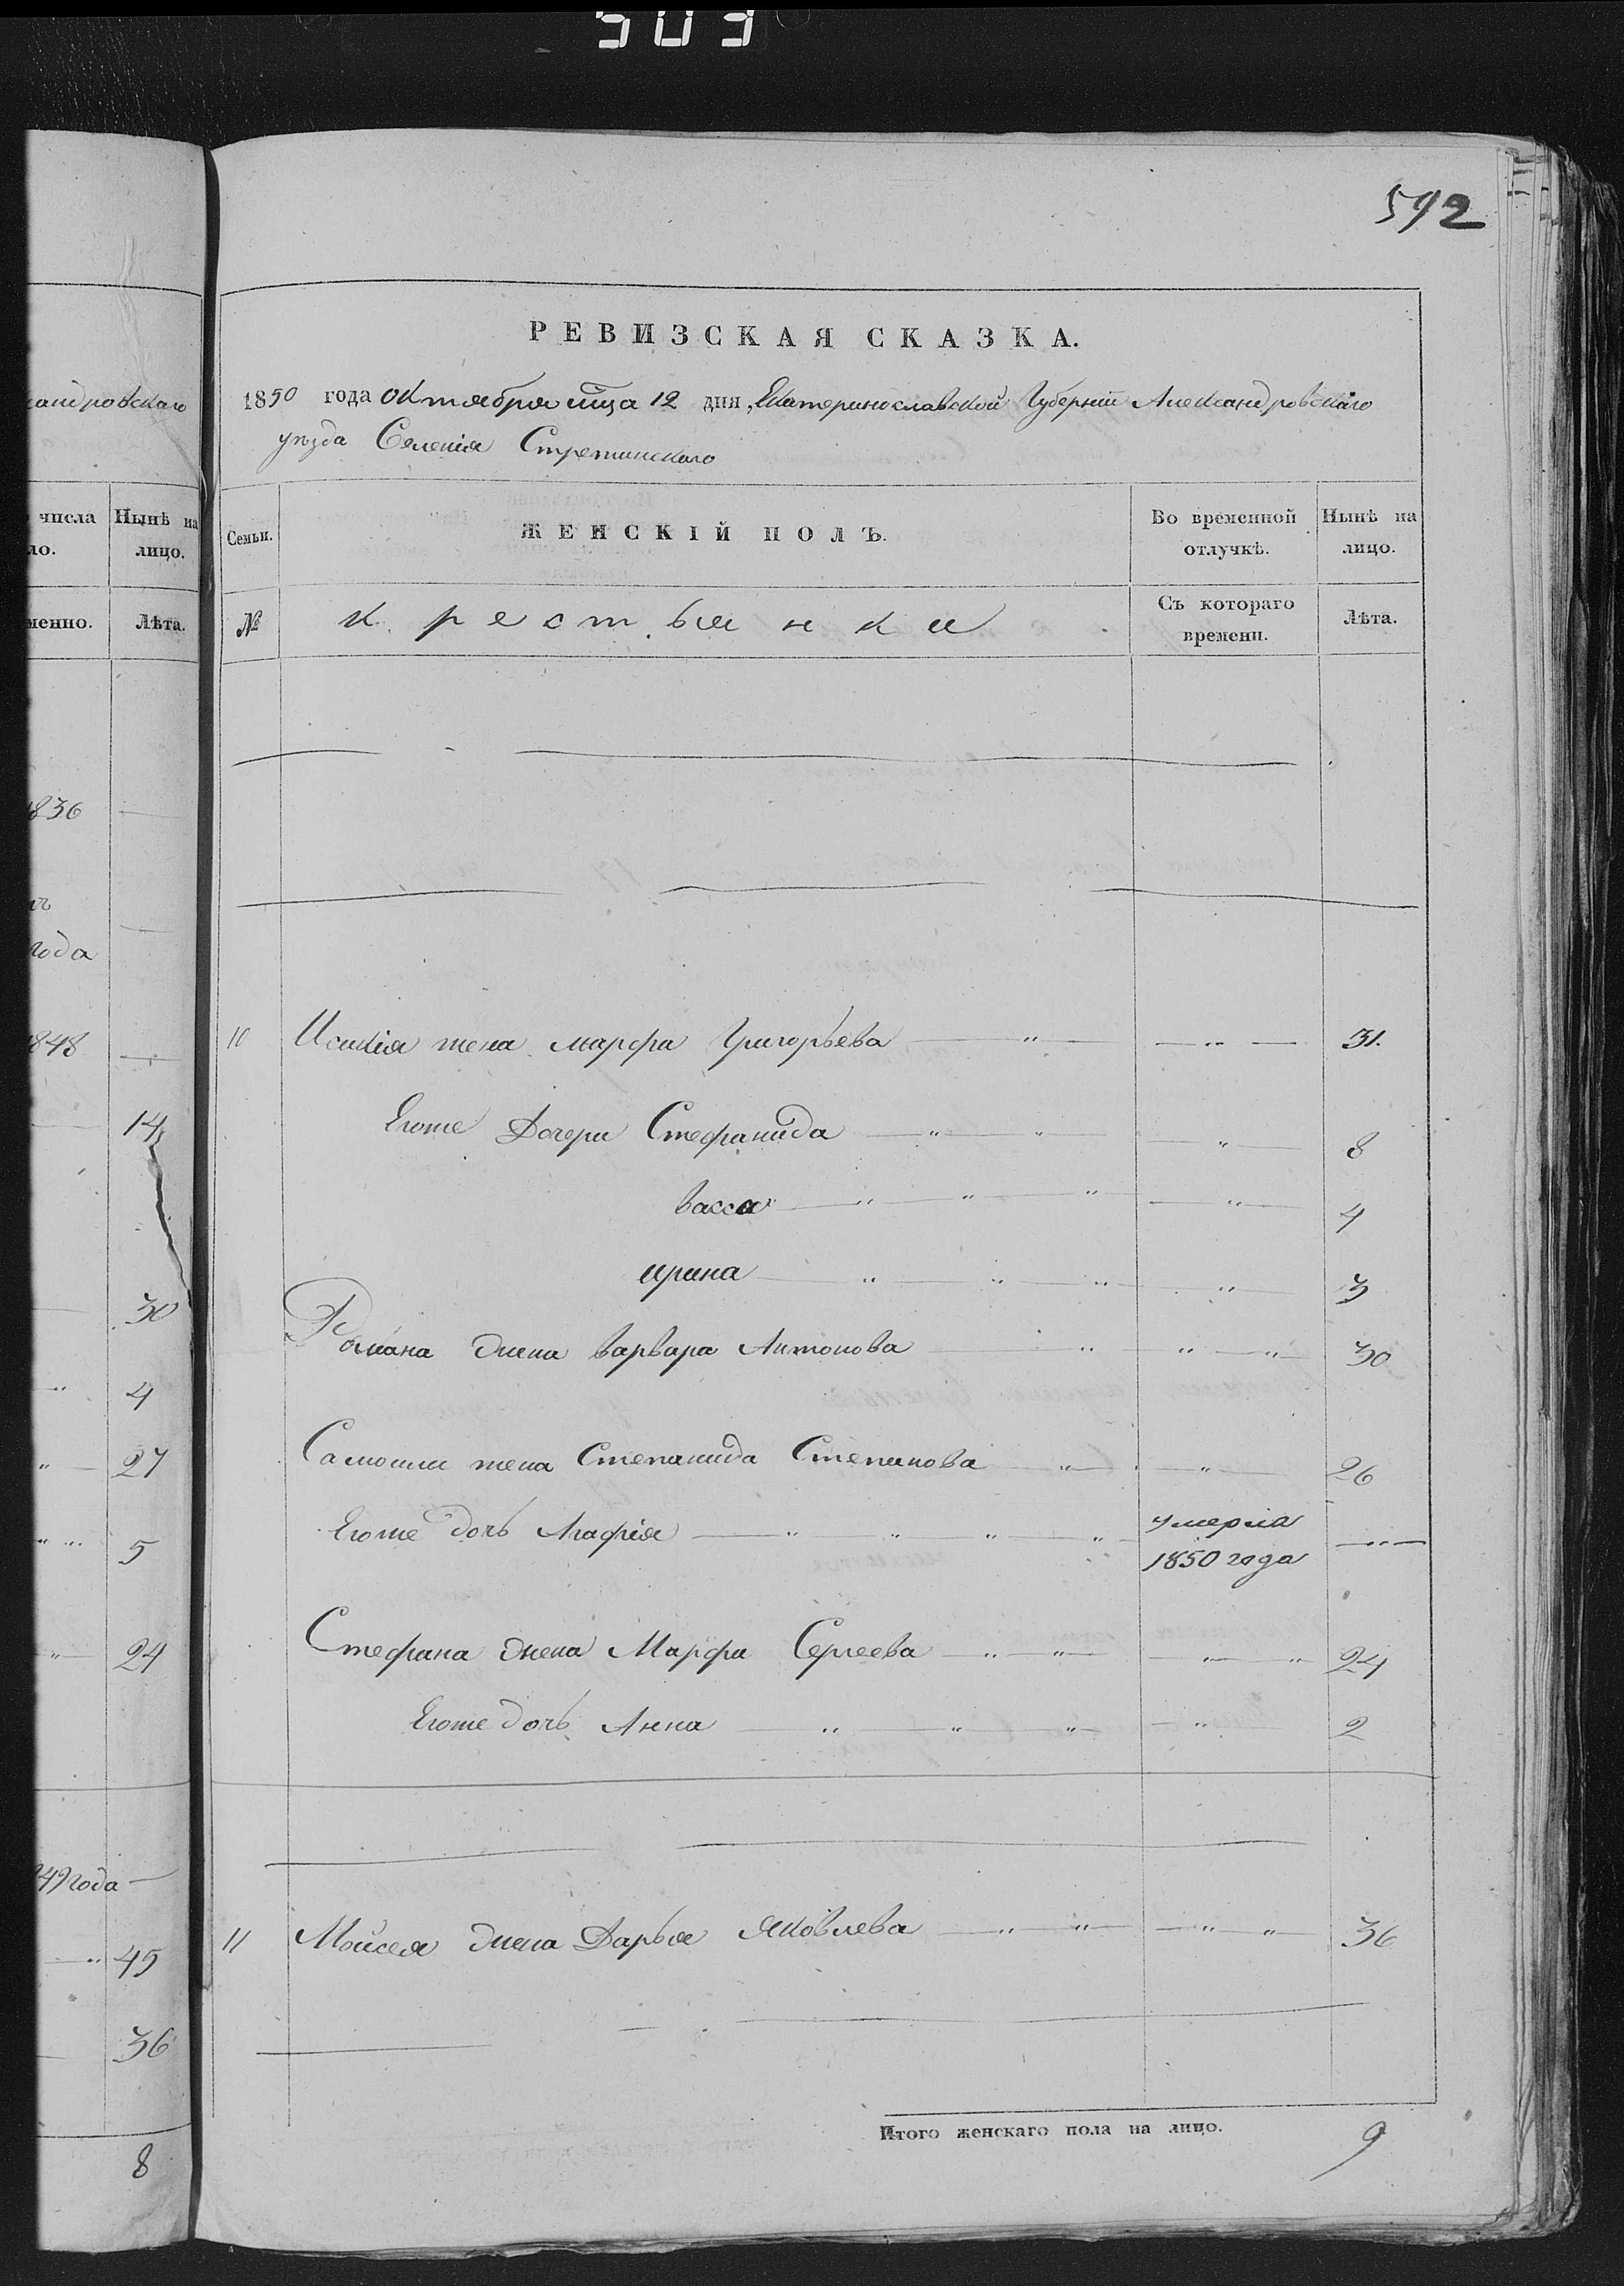 503
592
андровскаго
числа
ло.
Нынѣ на
лицо.
менно.
Лѣта.
1836
года
1848
14
30
4
27
5
24
49 года
45
36
8
РЕВИЗСКАЯ СКАЗКА.
1850 года октября мца 12 дня, Екатеринославской Губерніи Александровскаго
уѣзда Селенія Стретинскаго
Семьи.
ЖЕНСКІЙ ПОЛЪ.
Во временной
отлучкѣ.
Нынѣ на
лицо.
№
крестьянки
Съ котораго
времени.
Лѣта.
10 жена марфа Григорьева 31.
Егоже Дочери Стефанида 8
васса 4
ирина 3
Романа жена варвара Антонова 30
Самоила жена Степанида Степанова 26
Егоже дочь Агафія умерла
1850 года
Стефана жена Марфа Сергеева 24
Егоже дочь Анна 2
11 Мойсея жена Дарья Яковлева 36
Итого женскаго пола на лицо. 9